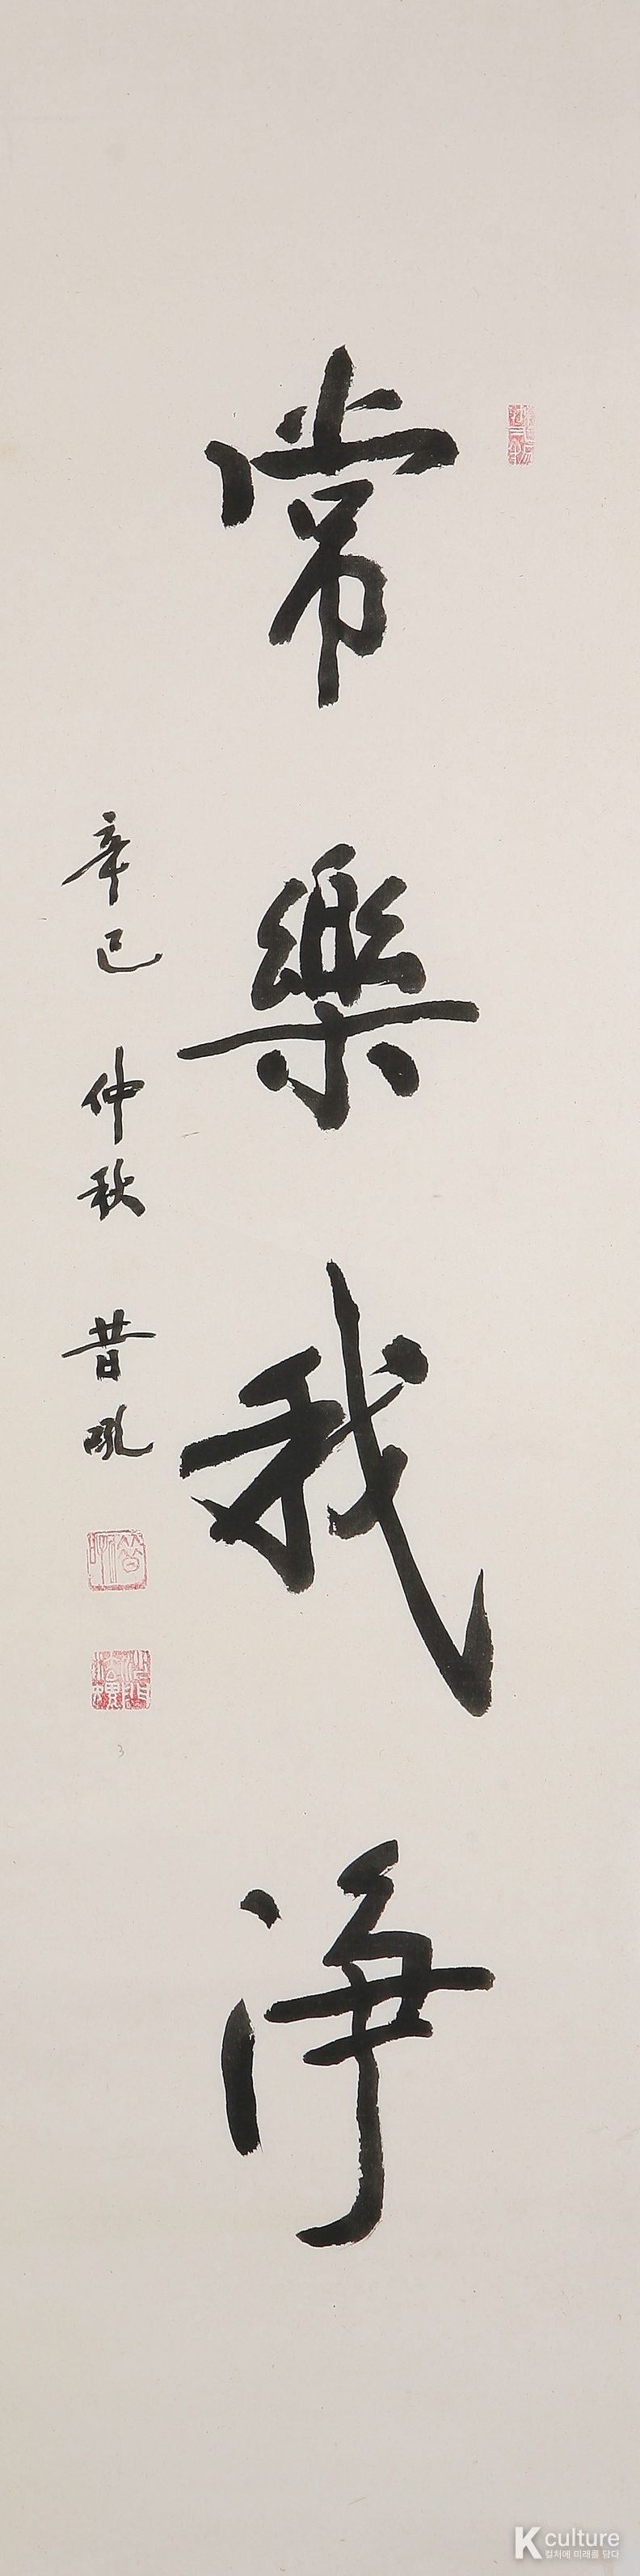 常樂我淨
辛巳 仲秋 昔吼
K culture
컬처에 미래를 담다